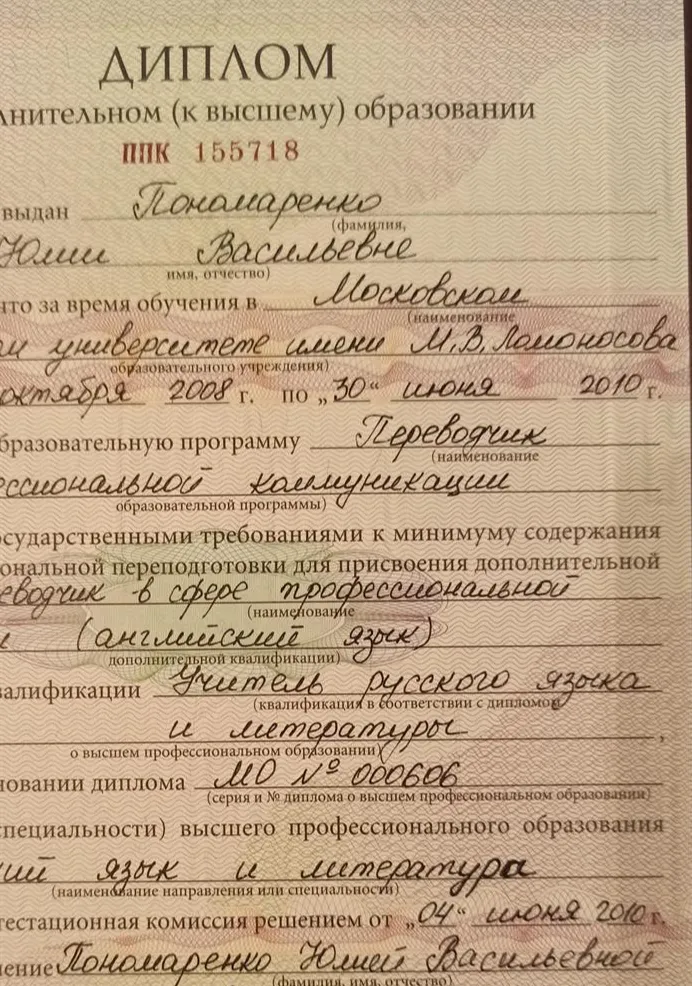 ДИПЛОМ
лнительном (к высшему) образовании
ППК 155718
выдан Пономаренко
(фамилия,
Юлии Васильевне
имя, отчество)
что за время обучения в Московском
(наименование
м университете имени М.В. Ломоносова
образовательного учреждения)
октября 2008 г. по „30“ июня 2010 г.
бразовательную программу Переводчик
(наименование
ессиональной коммуникации
образовательной программы)
осударственными требованиями к минимуму содержания
ональной переподготовки для присвоения дополнительной
еводчик в сфере профессиональной
(наименование
и (английский язык)
дополнительной квалификации)
валификации Учитель русского языка
(квалификация в соответствии с дипломом
и литературы,
о высшем профессиональном образовании)
новании диплома МО № 000606
(серия и № диплома о высшем профессиональном образовании)
специальности) высшего профессионального образования
кий язык и литература
(наименование направления или специальности)
тестационная комиссия решением от „04“ июня 2010 г.
ение Пономаренко Юлией Васильевной
(фамилия, имя, отчество)